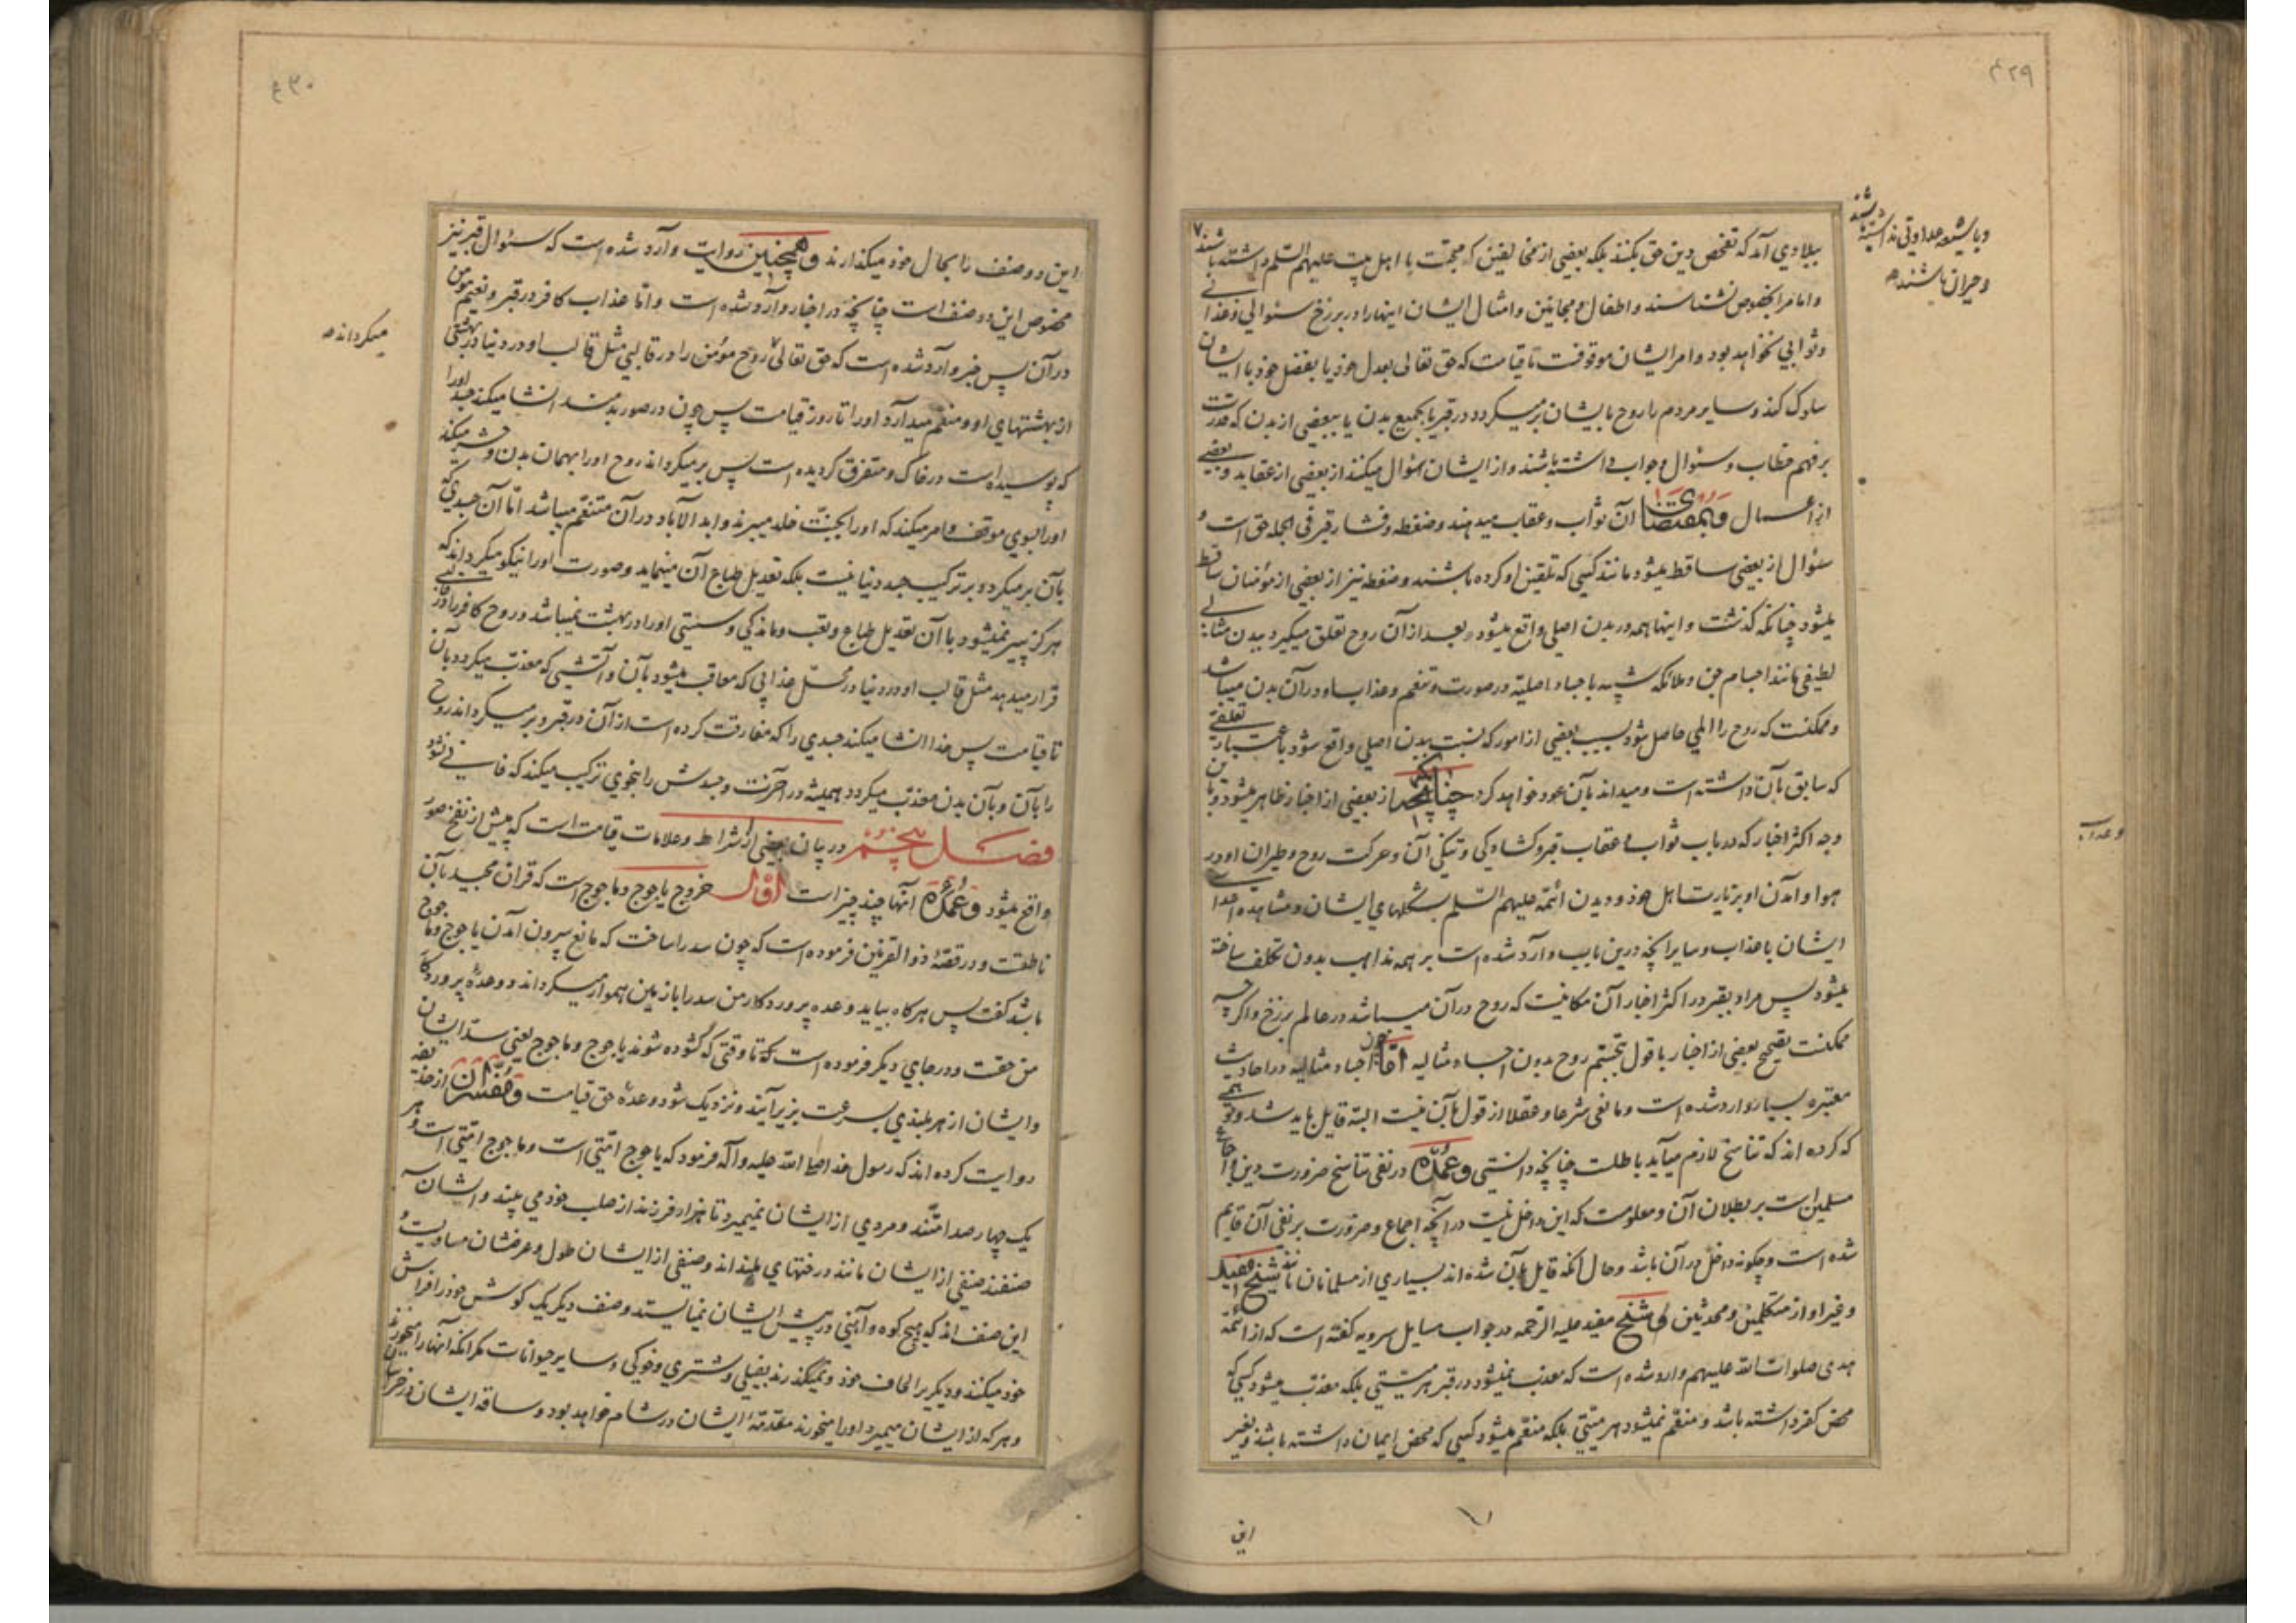 ۴۲۹
و با شیعه عداوتی نداشته باشند
و حیران باشند
ببلادي آمد که تفحص دین حق بکنند بلکه بعضي از مخالفین که محبّت با اهل بیت علیهم السلم داشته باشند
و امام را بخصوص نشناسند و اطفال و مجانین و امثال ایشان اینها را در برزخ سئوالي و عذابي
و ثوابي نخواهد بود و امر ایشان موقوفست تا قیامت که حق تعالی بعدل خود یا بفضل خود با ایشان
سلوک کند و سایر مردم را روح بایشان برمیگردد در قبر یا بجمیع بدن یا ببعضي از بدن که قدرت
بر فهم خطاب و سئوال و جواب داشته باشند و از ایشان سئوال میکنند از بعضي از عقاید و بعضي
از اعمال و بمقتضای آن ثواب و عقاب میدهند و ضغطه و فشار قبر في الجمله حق است و
سئوال از بعضي ساقط میشود مانند کسي که تلقین او کرده باشند و ضغطه نیز از بعضي از مؤمنان ساقط
میشود چنانکه گذشت و اینها همه در بدن اصلي واقع میشود و بعد از آن روح تعلق میگیرد ببدن مثالي
لطیفي مانند اجسام جن و ملائکه شبیه باجساد اصلیّه در صورت و تنعم و عذاب او در آن بدن میباشد
و ممکنست که روح را المي حاصل شود بسبب بعضي از امور که نسبت ببدن اصلي واقع شود باعتبار تعلقي
که سابق بآن داشته است و میداند بآن عود خواهد کرد چنانچه از بعضي از اخبار ظاهر میشود و باین
وجه اکثر اخبار که در باب ثواب و عقاب قبر و گشادگي و تنگي آن و حرکت روح و طیران او در
هوا و آمدن او بزیارت اهل خود و دیدن ائمّه علیهم السّلم بشکلهاي ایشان و مشاهده اعدا
ایشان با عذاب و سایر آنچه درین باب وارد شده است بر همه مذاهب بدون تکلف ساخته
میشود پس مراد بقبر در اکثر اخبار آن مکانیست که روح در آن میباشد در عالم برزخ و اگرچه
ممکنست تصحیح بعضي از اخبار با قول بتجسّم روح بدون اجساد مثالیه امّا چون اجساد مثالیه در احادیث
معتبره بسیار وارد شده است و مانعي شرعا و عقلا از قول بآن نیست البتّه قایل باید شد و توهمي
که کرده اند که تناسخ لازم میآید باطلست چنانچه دانستي و عمده در نفي تناسخ ضرورت دین و اجماع
مسلمین است بر بطلان آن و معلومست که این داخل نیست در آنچه اجماع و ضرورت بر نفي آن قایم
شده است و چگونه داخل در آن باشد و حال آنکه قایل بآن شده اند بسیاري از مسلمانان مانند شیخ مفید
و غیر او از متکلّمین و محدثین و شیخ مفید علیه الرّحمه در جواب مسایل سرویه گفته است که از ائمّه
هدی صلوات اللّه علیهم وارد شده است که معذّب نمیشود در قبر هر میّتي بلکه معذّب میشود کسي که
محض کفر داشته باشد و منعّم نمیشود هر میّتي بلکه منعّم میشود کسي که محض ایمان داشته باشد و بغیر
این
۴۳۰
این دو صنف را بحال خود میگذارند و همچنین روایت وارد شده است که سئوال قبر نیز
مخصوص این دو صنف است چنانچه در اخبار وارد شده است و امّا عذاب کافر در قبر و نعیم مومن
در آن پس خبر وارد شده است که حق تعالی روح مؤمن را در قالبي مثل قالب او در دنیا در بهشتي
از بهشتهاي او و منعّم میدارد او را تا روز قیامت پس چون در صور بدمند انشا میکند جسد او را
که پوسیده است در خاک و متفرق گردیده است پس برمیگرداند روح او را بهمان بدن و حشر میکند
او را بسوي موقف و امر میکند که او را بجنّت خلد میبرند و ابد الآباد در آن متنعّم میباشد امّا آن جسدي که
بآن برمیگردد بر ترکیب جسد دنیا نیست بلکه تعدیل طباع آن مینماید و صورت او را نیکو میگرداند که
هرگز پیر نمیشود با آن تعدیل طباع و تعب و ماندگي و سستي او را در بهشت نمیباشد و روح کافر را در قالبي
قرار میدهد مثل قالب او در دنیا در محلّ عذابي که معاقب میشود بآن و آتشي که معذّب میگردد بآن
تا قیامت پس خدا انشا میکند جسدي را که مفارقت کرده است از آن در قبر و برمیگرداند روح
را بآن و بآن بدن معذّب میگردد همیشه در آخرت و جسدش را بنحوي ترکیب میکند که فاني نشود
فصل پنجم در بیان بعضي از شرایط و علامات قیامت است که پیش از نفخ صور
واقع میشود و عمده آنها چند چیز است اوّل خروج یاجوج و ماجوج است که قران مجید بآن
ناطقست و در قصّه ذوالقرنین فرموده است که چون سد را ساخت که مانع بیرون آمدن یاجوج و ماجوج
باشد گفت پس هرگاه بیاید وعده پروردگار من سد را با زمین هموار میگرداند و وعده پروردگار
من حقست و در جاي دیگر فرموده است که تا وقتي که گشوده شوند یاجوج و ماجوج یعني سدّ ایشان
و ایشان از هر بلندي بسرعت بزیر آیند و نزدیک شود وعدهٔ حق قیامت و مفسّران از حذیفه
روایت کرده اند که رسول خدا صلی اللّه علیه و آله فرمود که یاجوج امّتي است و ماجوج امّتي است و هر
یک چهار صد امّتند و مردي از ایشان نمیمیرد تا هزار فرزند از صلب خود مي بیند و ایشان سه
صنفند صنفي از ایشان مانند درختهاي بلند اند و صنفي از ایشان طول و عرضشان مساویست و
این صنف اند که هیچ کوه و آهني در پیش ایشان نمیایستد و صنف دیگر یک گوش خود را فراش
خود میکنند و دیگریرا لحاف خود و نمیگذرند بفیلي و شتري و خوکي و سایر حیوانات مگر آنکه آنها را میخورند
و هر که از ایشان میمیرد او را میخورند مقدّمهٔ ایشان در شام خواهد بود و ساقه ایشان در خراسان
میگرداند